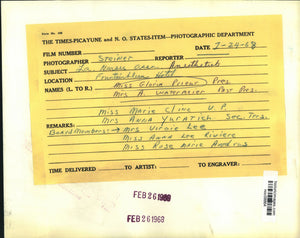 Form No. 408
THE TIMES-PICAYUNE and N. O. STATES-ITEM—PHOTOGRAPHIC DEPARTMENT
FILM NUMBER DATE 2-24-68
PHOTOGRAPHER Steiner REPORTER
SUBJECT La Nurses Assn. Anesthetists
LOCATION Fontainbleau Hotel
NAMES (L. TO R.) Miss Gloria Pres.
Mrs A. Past Pres.
Miss Marie Cline V.P.
REMARKS: Mrs Anna Sec. Tres.
Board Members: Mrs Virgie Lee
Miss Anna Lee Riviere
Miss Rose Marie
DELIVERED TIME TO ARTIST: TO ENGRAVER:
FEB 26 1968
FEB 26 1968